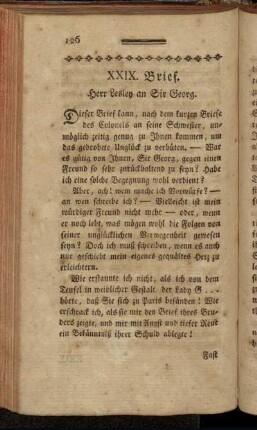 126
XXIX. Brief.
Herr Lesley an Sir Georg.
Dieser Brief kann, nach dem kurzen Briefe
des Colonels an seine Schwester, un-
möglich zeitig genug zu Ihnen kommen, um
das gedrohete Unglück zu verhüten. — War
es gütig von Ihnen, Sir Georg, gegen einen
Freund so sehr zurückhaltend zu seyn? Habe
ich eine solche Begegnung wohl verdient?
Aber, ach! wem mache ich Vorwürfe? —
an wen schreibe ich? — Vielleicht ist mein
würdiger Freund nicht mehr — oder, wenn er
noch lebt, was mögen wohl die Folgen von
seiner unglücklichen Verwegenheit gewesen
seyn? Doch ich muß schreiben, wenn es auch
nur geschieht mein eigenes gequältes Herz zu
erleichtern.
Wie erstaunte ich nicht, als ich von dem
Teufel in weiblicher Gestalt, der Lady G . .
hörte, daß Sie sich zu Paris befänden! Wie
erschrack ich, als sie mir den Brief ihres Bru-
ders zeigte, und mir mit Angst und tiefer Reue
ein Bekänntniß ihrer Schuld ablegte!
Fast